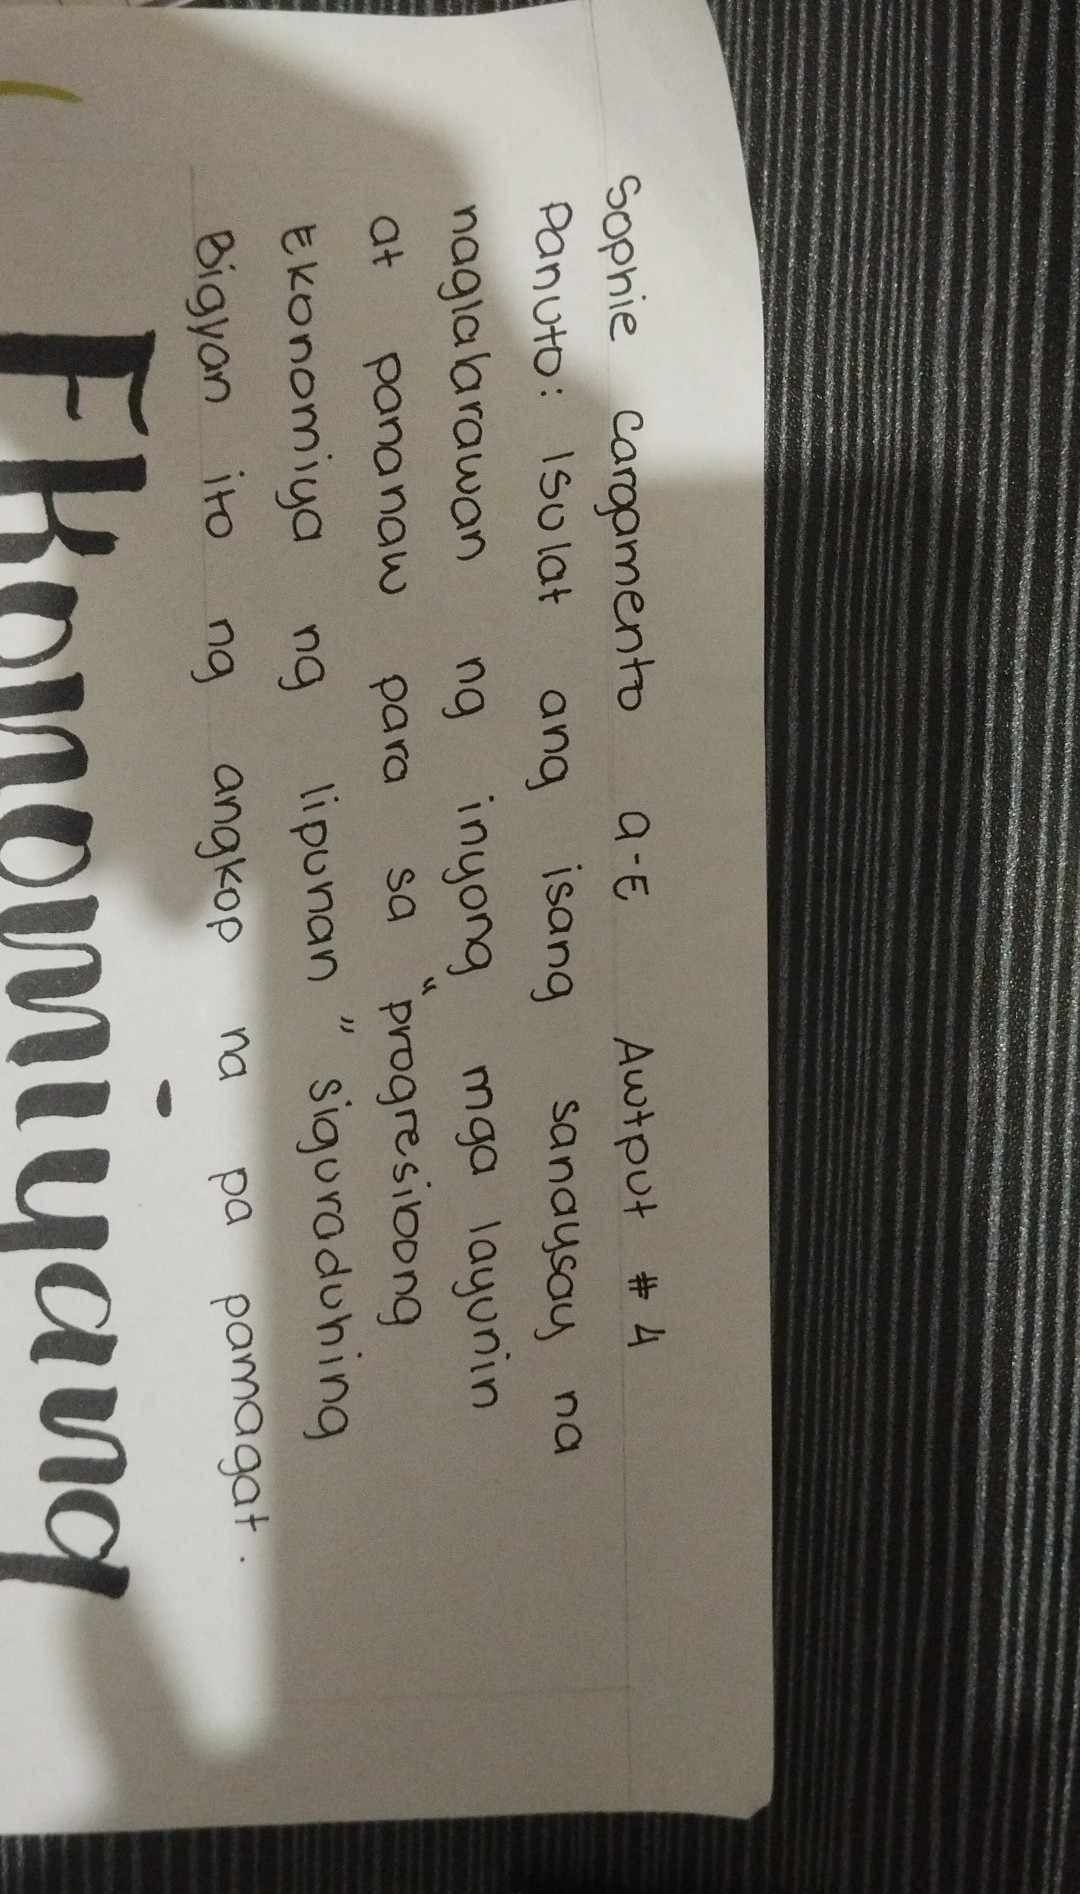 Sophie Cargamento 9-E Awtput # 4
Panuto: Isulat ang isang sanaysay na
naglalarawan ng inyong mga layunin
at pananaw para sa "progresibong
Ekonomiya ng lipunan" siguraduhing
Bigyan ito ng angkop na pa pamagat.
Ekonomiyang